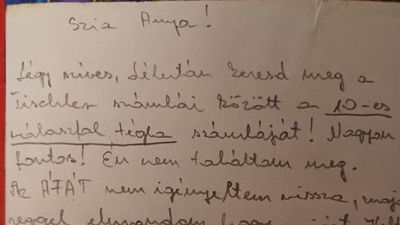 Szia Anya!
Légy szíves, délután keresd meg a
Tischler számlái között a 10-es
válaszfal tégla számláját! Nagyon
fontos! Én nem találtam meg.
Az ÁFÁT nem igényeltem vissza, majd
reggel elmondom hogy